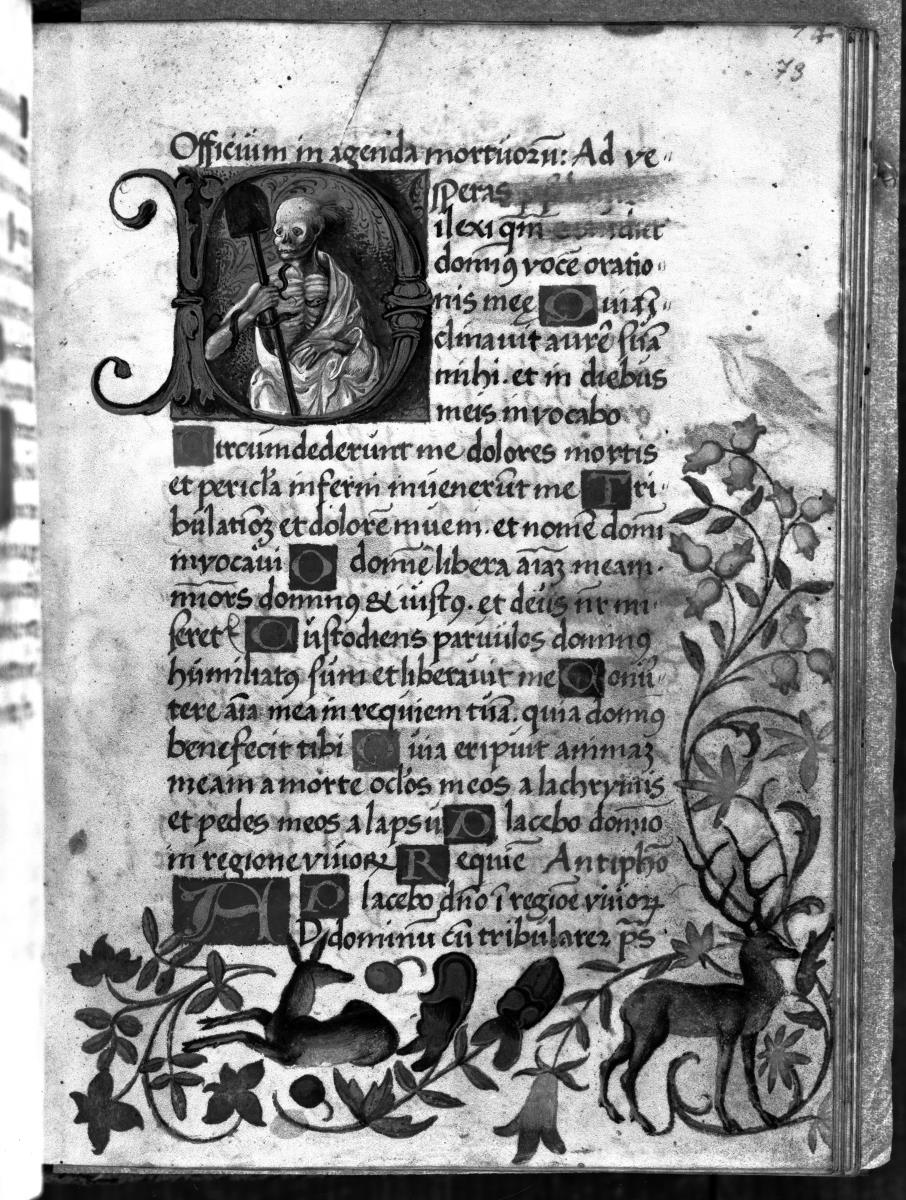 74
73
Officium in agenda mortuorū: Ad ve〃
D speras
ilexi qm̄
domin9 vocē oratio〃
nis mee Q uia
clinavit aurē suā
mihi. et in diebus
meis invocabo
C ircumdederunt me dolores mortis
et pericl'a inferni invenerūt me T ri〃
bulationē et dolorē inveni. et nomē domi
invocavi O domīe libera aīaꝫ meam.
misericors domin9 & iust9. et deus nr̄ mi〃
seret C ustodiens parvulos domin9
humiliat9 sum et liberavit me C onver
tere aīa mea in requiem tuā. quia domin9
benefecit tibi Q uia eripuit animaꝫ
meam a morte oclos meos a lachrymis
et pedes meos a lapsu P lacebo domino
in regione vivoꝝ R equiē Antiphō
A P lacebo dn̄o ī regiōe vivoꝝ
A D dominū cū tribularer ps